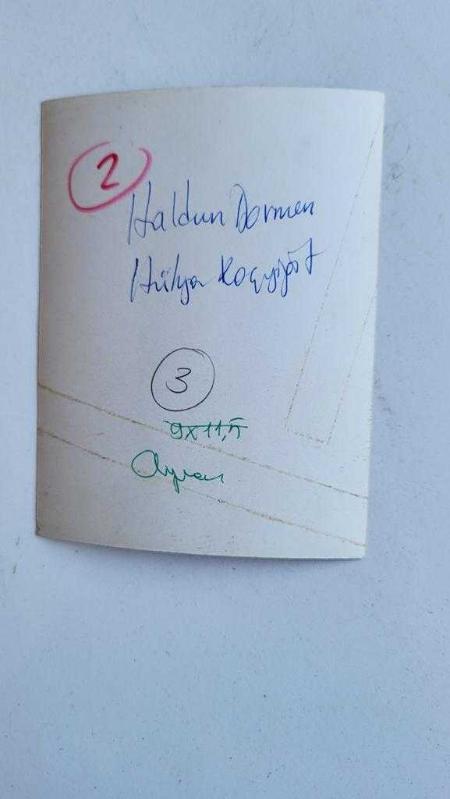 2
Haldun Dormen
Hülya Koçyiğit
3
9x11,5
Aynen